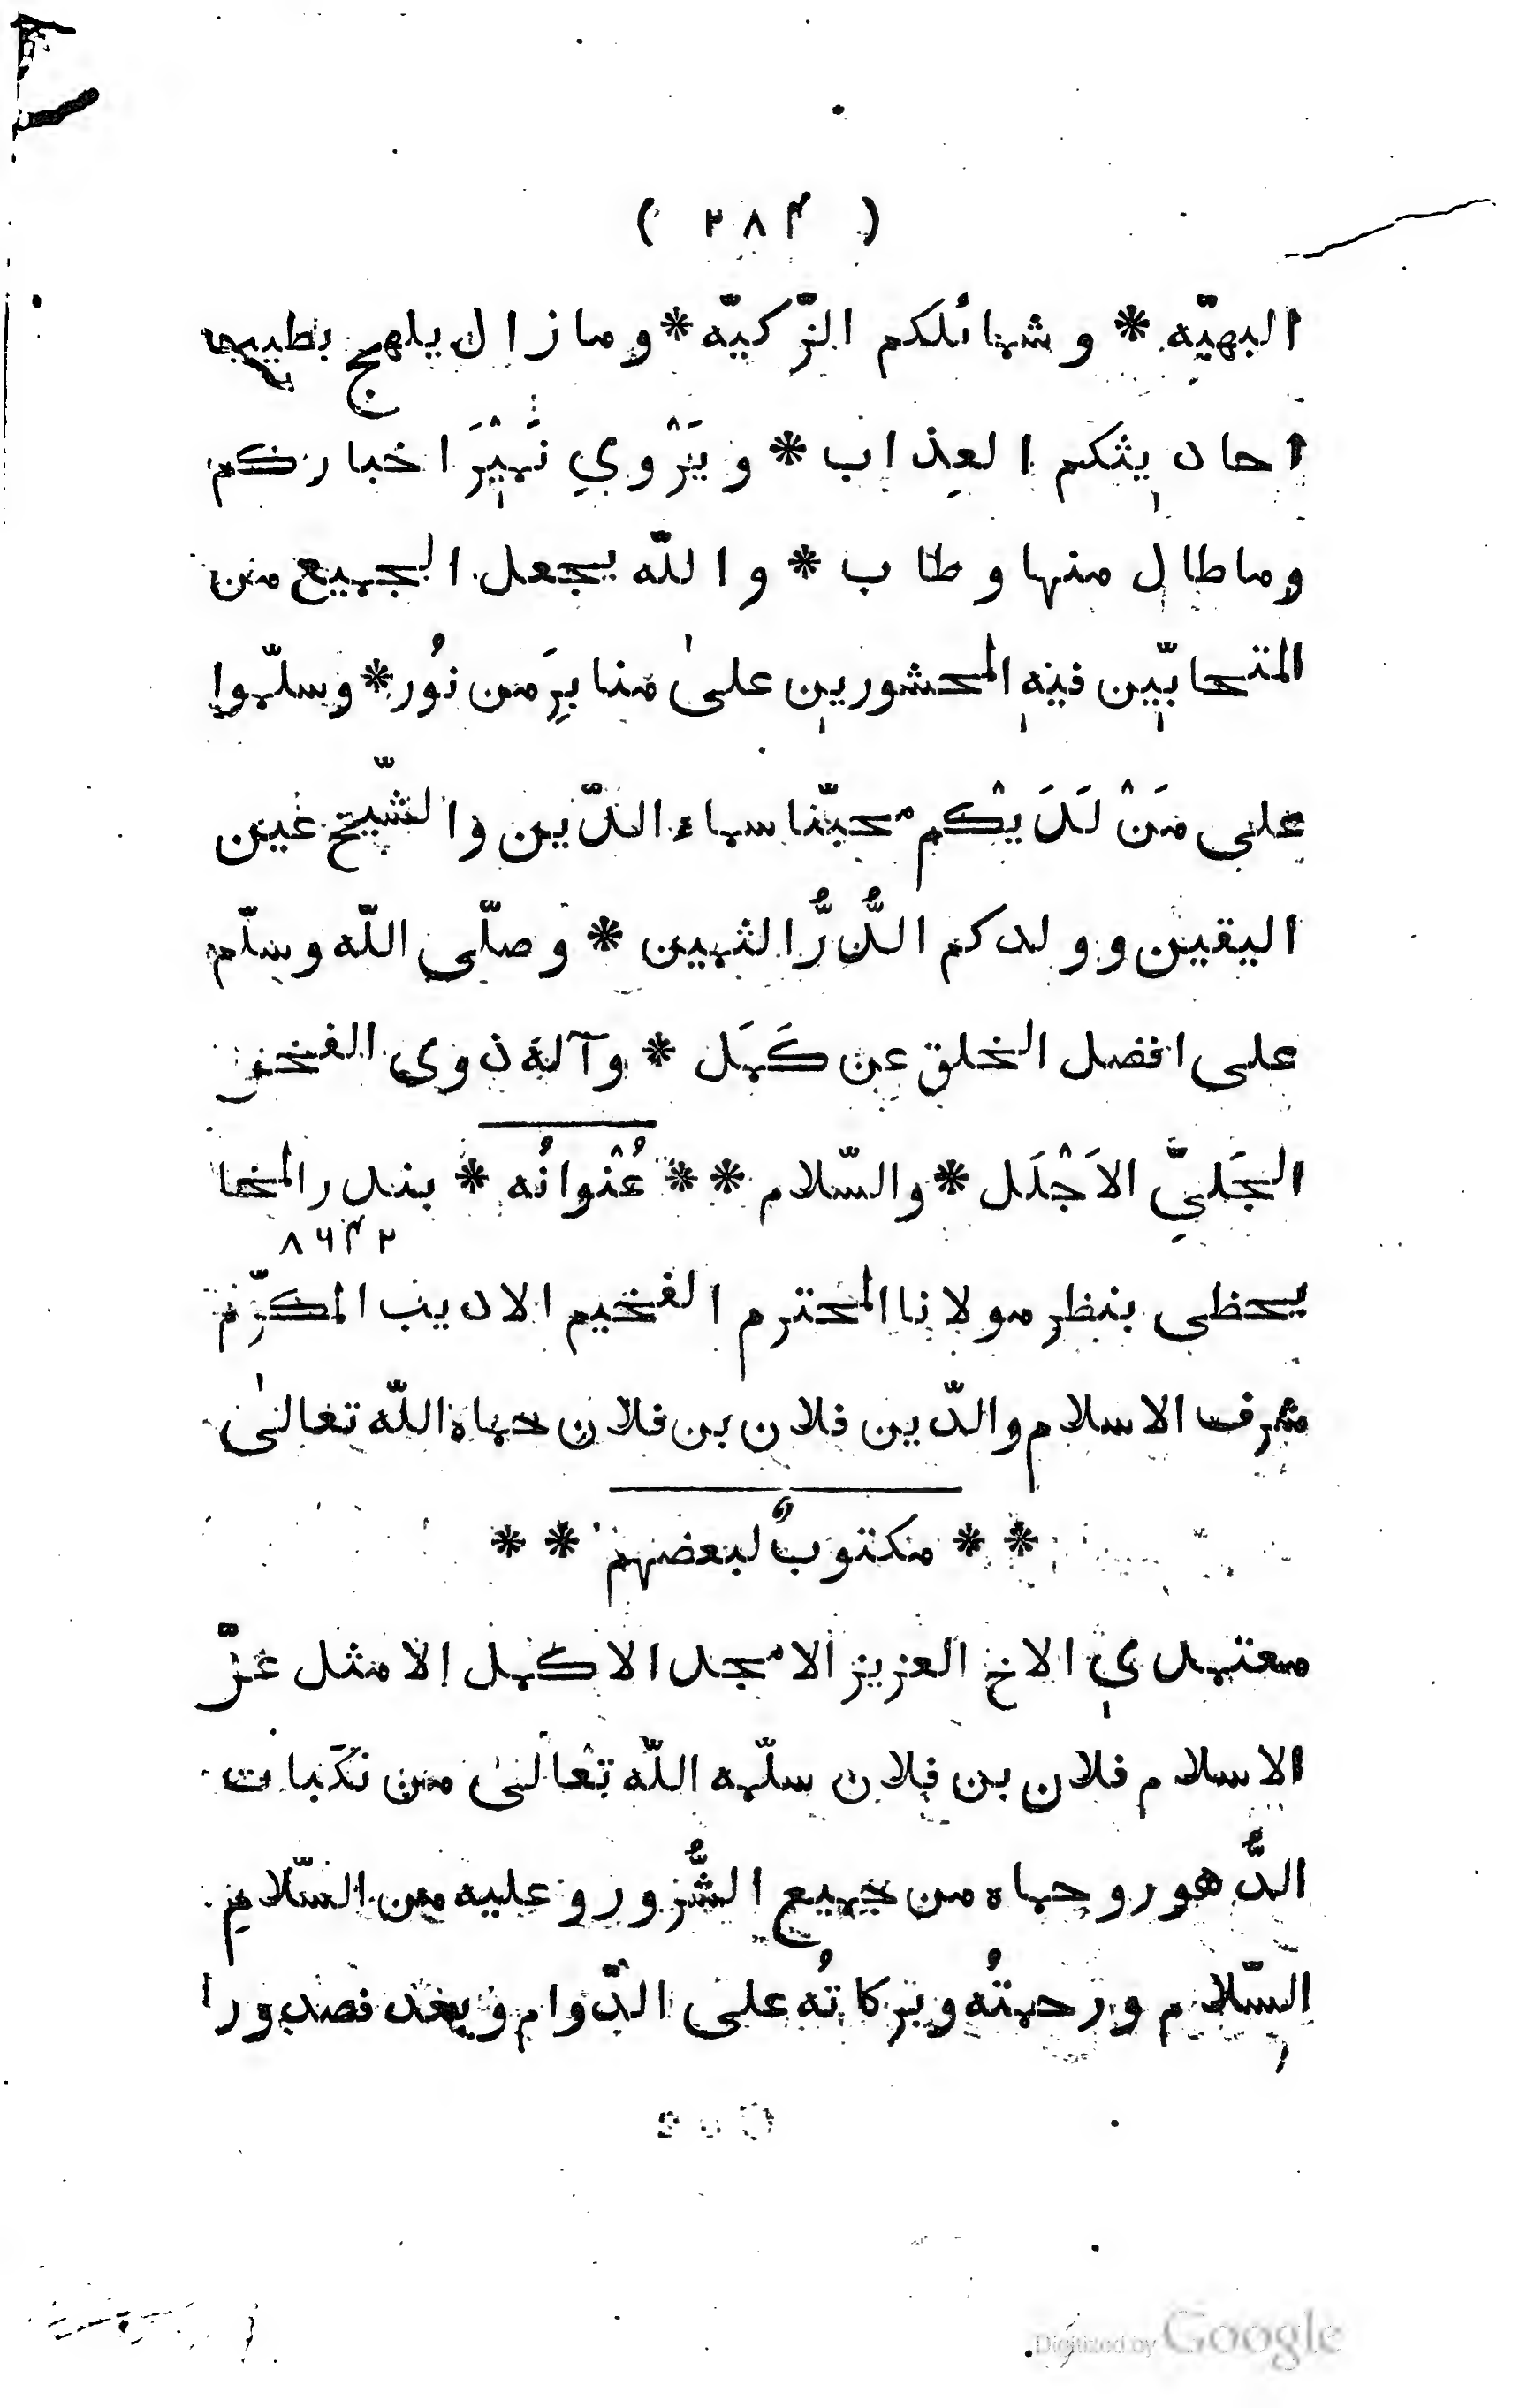 ( ٢٨۴ )
البهيّه * وشمائلكم الزّكيّه * وما زال يلهج بطيب
احاديثكم العِذاب * ويَرْوِي نَمِيْرَ اخباركم
وماطال منها وطاب * والله يجعل الجميع من
المتحابّين فيه المحشورين علىٰ منابِرَ من نُور * وسلّموا
على مَنْ لَدَيْكم محبّنا سماء الدّين والشّيخ عين
اليقين وولدكم الدُّرُّ الثمين * وصلّى اللّه وسلّم
على افضل الخلق عن كَمَل * وآله ذوى الفخر
الجَليِّ الاَجْلَل * والسّلام * * عُنْوانُه * بندر المخا
٨٦۴٢
يحظى بنظر مولانا المحترم الفخيم الاديب المكرّم
شرف الاسلام والدّين فلان بن فلان حماه اللّه تعالىٰ
* * مكتوبٌ لبعضهم * *
معتمدي الاخ العزيز الامجد الاكمل الامثل عزّ
الاسلام فلان بن فلان سلّمه اللّه تعالىٰ من نكَبات
الدُّهور وحماه من جميع الشُّرور وعليه من السّلامِ
السّلام ورحمتُه وبركاتُه على الدّوام وبعد فصدورا
Digitized by Google